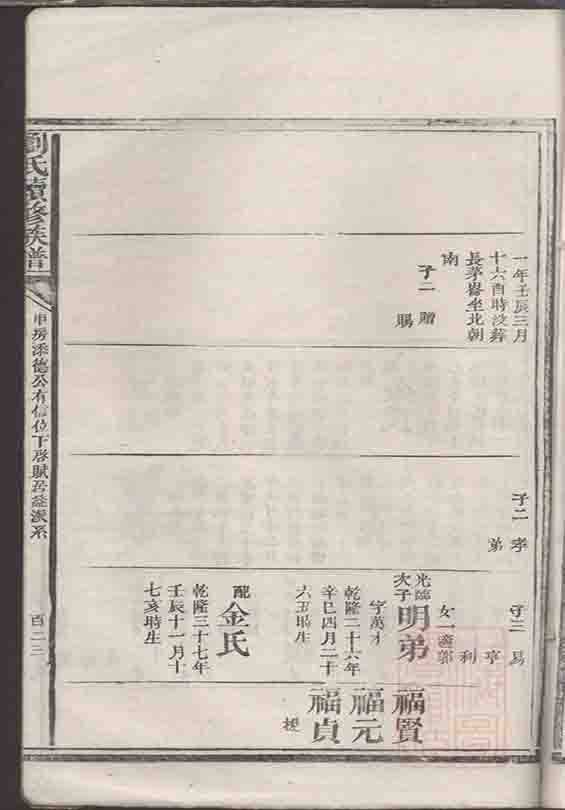 一年壬辰三月
十六酉時没葬
長茅崙坐北朝
南
子二 贈
賜
子二 孝
弟
子三 易
亨
利
女一 適鄒
光 次子
明弟
字萬才
乾隆二十六年
辛巳四月二十
六丑時生
配金氏
乾隆三十七年
壬辰十一月十
七亥時生
福賢
福元
福貞
劉氏續修族譜
申房添德公有信位下啓賦居益派系
百二三